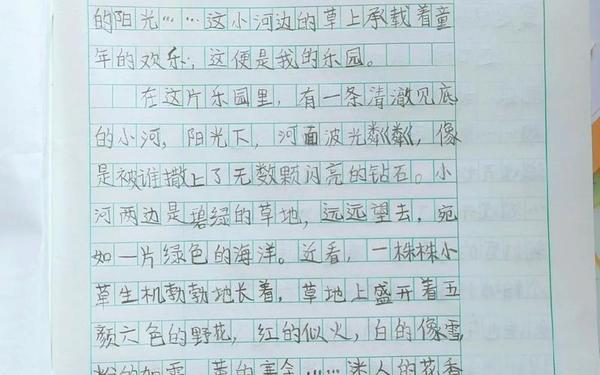 的阳光……这小河边的草上承载着童
年的欢乐,这便是我的乐园。
在这片乐园里,有一条清澈见底
的小河,阳光下,河面波光粼粼,像
是被谁撒上了无数颗闪亮的钻石。小
河两边是碧绿的草地,远远望去,宛
如一片绿色的海洋。近看,一株株小
草生机勃勃地长着,草地上盛开着五
颜六色的野花,红的似火,白的像雪,
粉的如霞,黄的赛金……迷人的花香